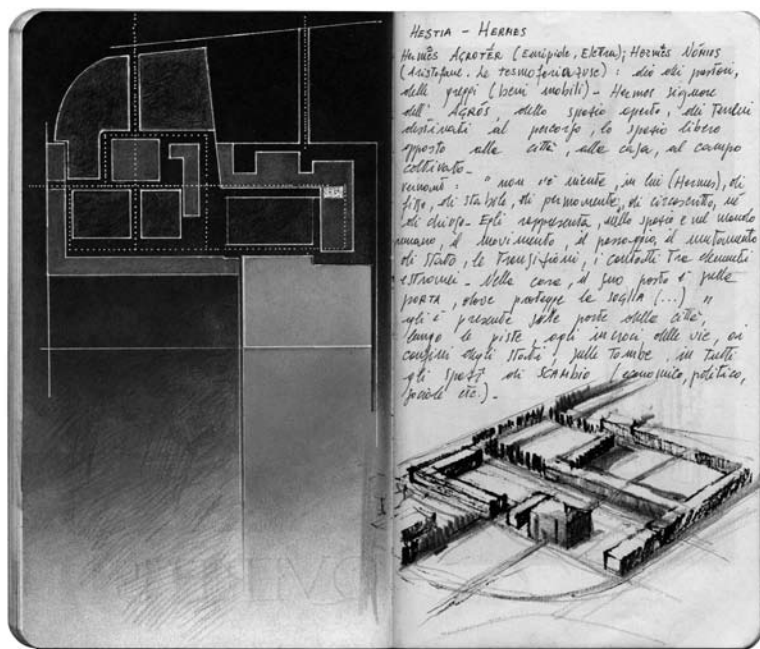 HESTIA - HERMES
Hermes AGROTÉR (Euripide, Elektra); Hermes NÓMIOS
(Aristofane. Le tesmoforiazuse) : dio dei pastori,
delle greggi (beni mobili) - Hermes signore
dell' AGRÓS, dello spazio aperto, dei terreni
destinati al percorso, lo spazio libero
opposto alla città, alla casa, al campo
coltivato -
Vernant : " non c'è niente, in lui (Hermes), di
fisso, di stabile, di permanente, di circoscritto, né
di chiuso - Egli rappresenta, nello spazio e nel mondo
umano, il movimento, il passaggio, il mutamento
di stato, le transizioni, i contatti tra elementi
estranei - Nella casa, il suo posto è sulla
PORTA, dove protegge la SOGLIA (...) "
egli è presente sulle porte della città,
lungo le piste, agli incroci delle vie, ai
confini degli stadi, sulle tombe, in tutti
gli spazi di SCAMBIO (economico, politico,
sociale etc.) -